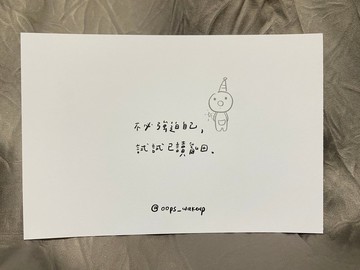 不必強迫自己，
試試已讀亂回．
@oops_wakeup